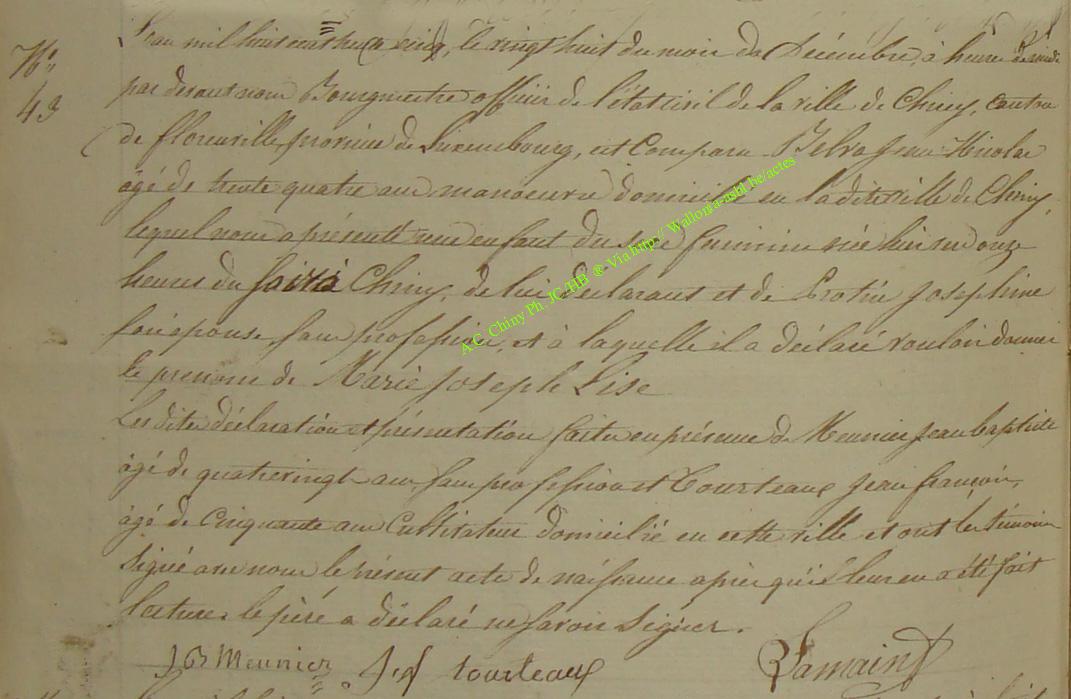 L'an mil huit cent trente cinq, le vingt huit du mois de Décembre, à heure de midi
N°
43
par devant nous Bourgmestre officier de l'état civil de la ville de Chiny, canton
de florenville, province de Luxembourg, est Comparu Jean Nicolas
âgé de trente quatre ans manoeuvre domicilié en la dite ville de Chiny,
lequel nous a présenté un enfant du sexe feminin née hier onze
heures du soir à Chiny, de lui déclarant et de Protin Josephine
son épouse, sans profession, et à laquelle il a déclaré vouloir donner
le prenom de Marie Joseph Lise
Les dites déclaration et présentation faites en présence de Meunier Jean baptiste
âgé de quatrevingt ans sans profession et Tourteaux Jean françois,
âgé de Cinquante ans Cultivateur domicilié en cette ville et ont les témoins
signée avec nous le présent acte de naissance après qu'il leur en a été fait
lecture. le père a déclaré ne savoir signer.
JB Meunier J f tourteaux Lamain
A.C. Chiny Ph. JC-HB ® Via http:// Wallonia-asbl.be/actes